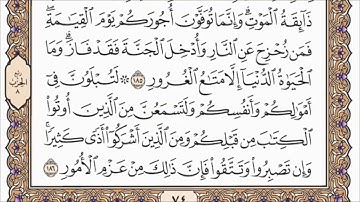 ذَآئِقَةُ ٱلْمَوْتِ ۗ وَإِنَّمَا تُوَفَّوْنَ أُجُورَكُمْ يَوْمَ ٱلْقِيَٰمَةِ ۖ
فَمَن زُحْزِحَ عَنِ ٱلنَّارِ وَأُدْخِلَ ٱلْجَنَّةَ فَقَدْ فَازَ ۗ وَمَا
ٱلْحَيَوٰةُ ٱلدُّنْيَآ إِلَّا مَتَٰعُ ٱلْغُرُورِ ١٨٥ ۞ لَتُبْلَوُنَّ فِىٓ
أَمْوَٰلِكُمْ وَأَنفُسِكُمْ وَلَتَسْمَعُنَّ مِنَ ٱلَّذِينَ أُوتُوا۟
ٱلْكِتَٰبَ مِن قَبْلِكُمْ وَمِنَ ٱلَّذِينَ أَشْرَكُوٓا۟ أَذًى كَثِيرًا ۚ
وَإِن تَصْبِرُوا۟ وَتَتَّقُوا۟ فَإِنَّ ذَٰلِكَ مِنْ عَزْمِ ٱلْأُمُورِ ١٨٦
٧٤